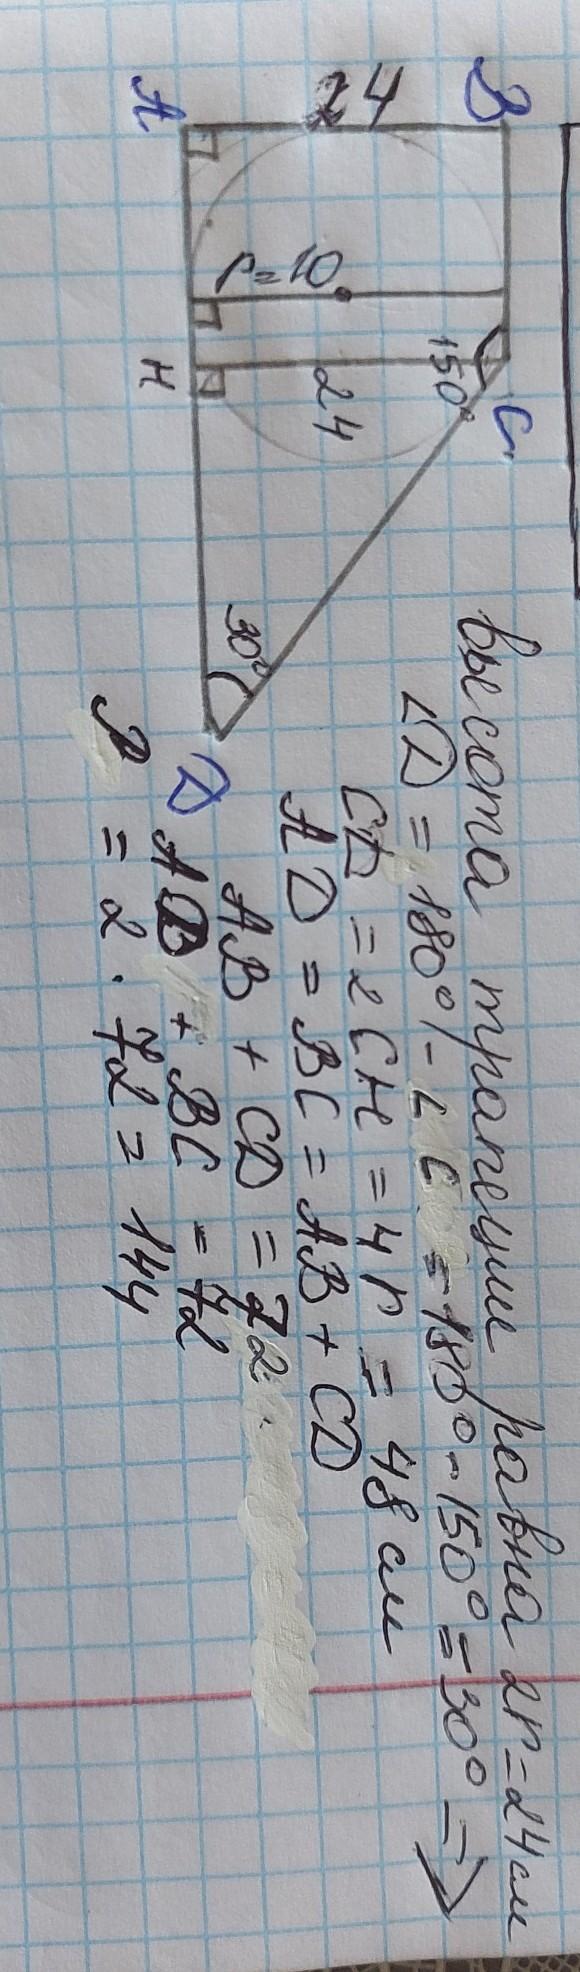 B
24
A
r=10
150°
C
24
H
30°
D
высота трапеции равна 2r=24 см
∠D = 180° - ∠C = 180° - 150° = 30° =>
CD = 2CH = 4r = 48 см
AD = BC = AB + CD
AB + CD = 72.
AD + BC = 72
P = 2 · 72 = 144